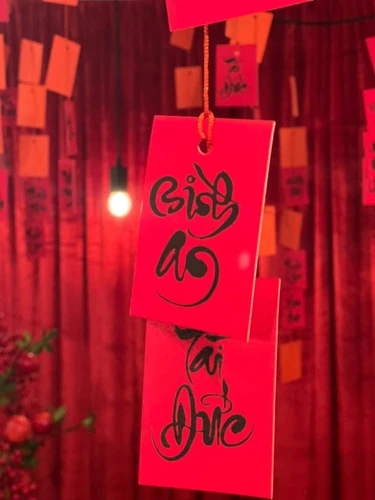 Bình
An
Tài
Đức